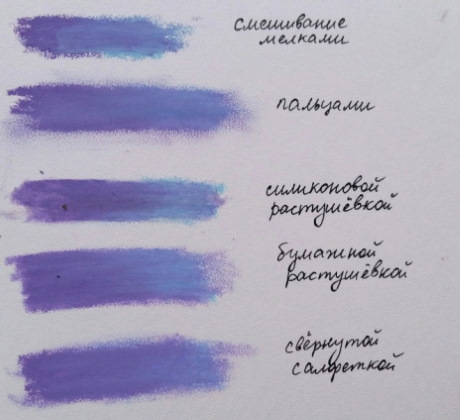 смешивание
мелками
пальцами
силиконовой
растушёвкой
бумажной
растушёвкой
свёрнутой
салфеткой